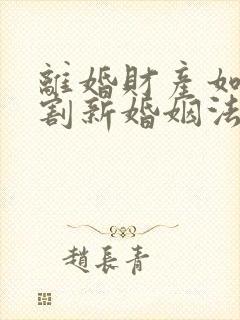 離婚財產如
割新婚姻法
趙長青